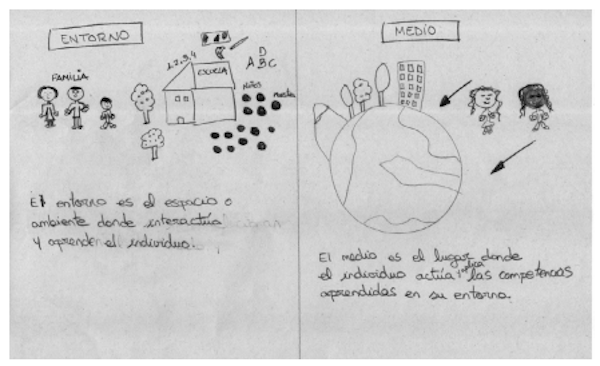 ENTORNO
FAMILIA
1,2,3,4
ESCUELA
D
ABC
niños
maestra
El entorno es el espacio o
ambiente donde interactúa
y aprende el individuo.
MEDIO
El medio es el lugar donde
el individuo actúa las competencias
aprendidas en su entorno.